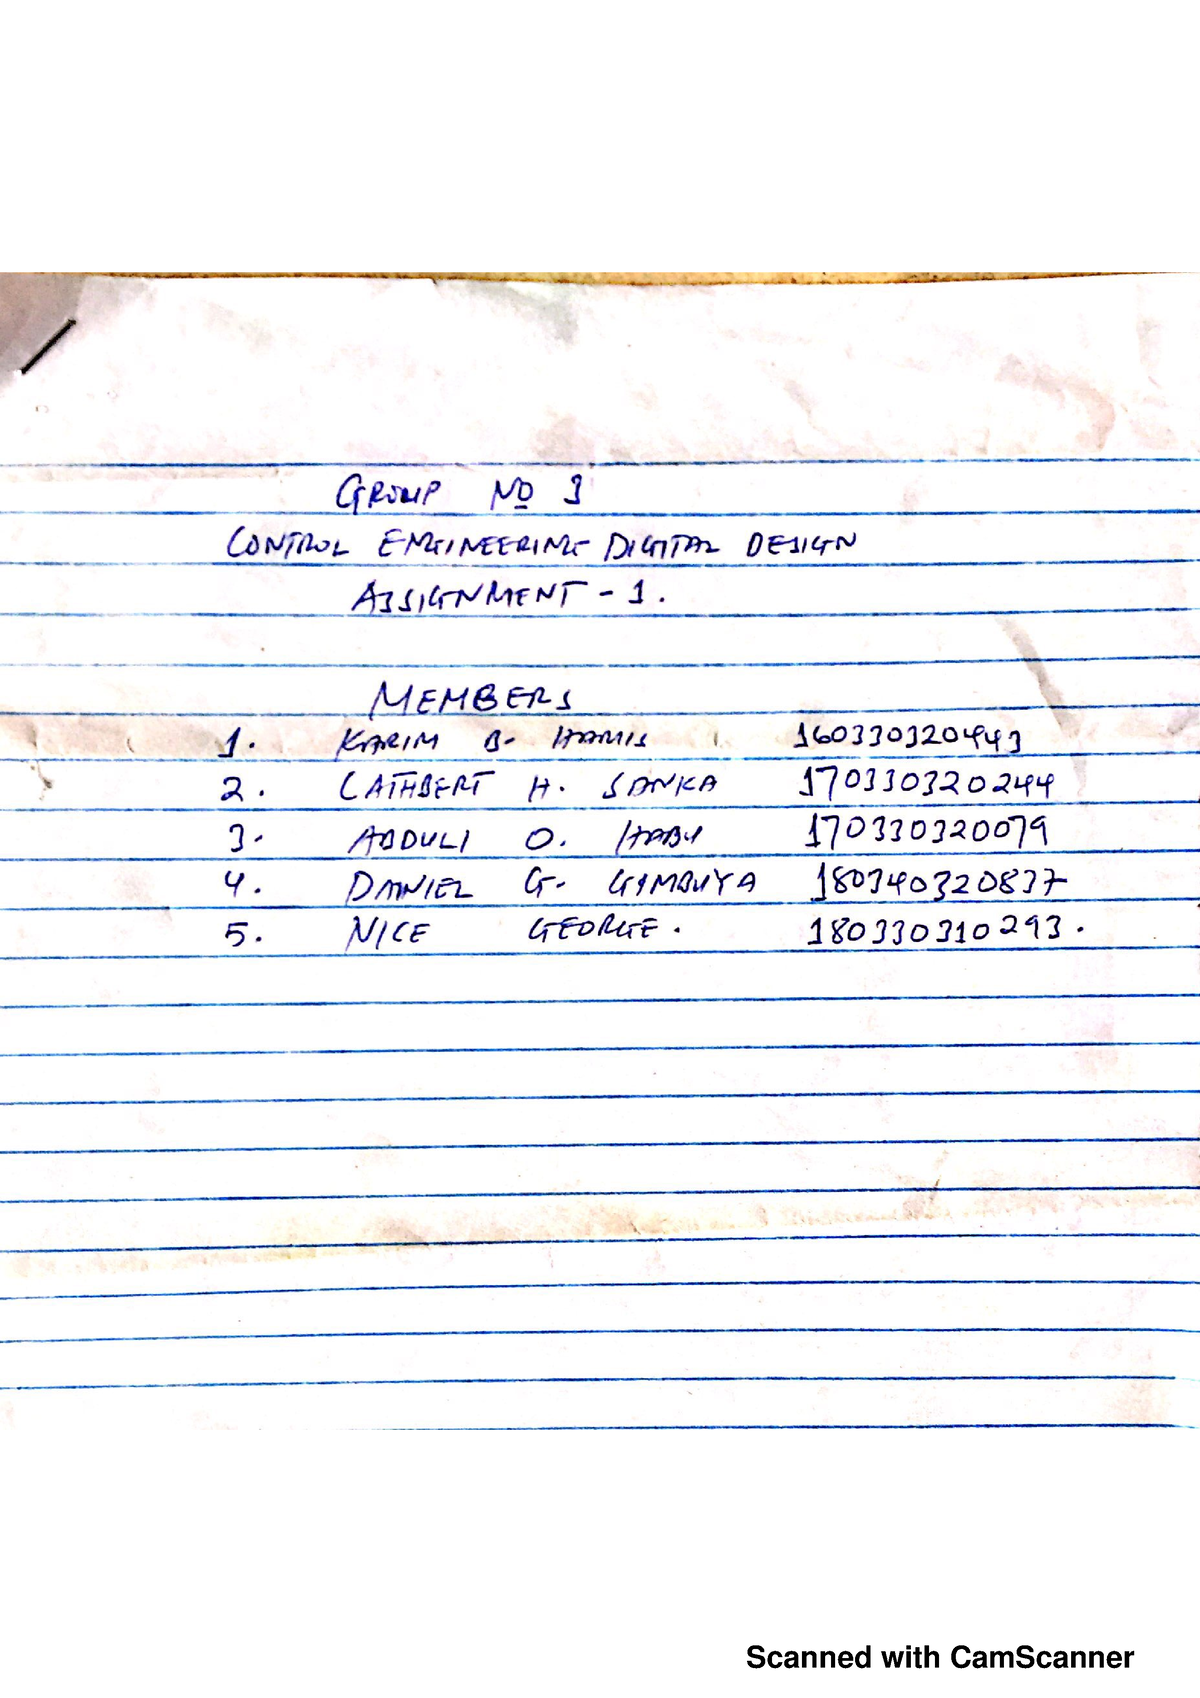 GROUP No 3
CONTROL ENGINEERING DIGITAL DESIGN
ASSIGNMENT - 1.
MEMBERS
1. KARIM B. HAMIS 160330320443
2. CATHBERT H. SANKA 170330320244
3. ABDULI O. HABY 170330320079
4. DANIEL G. GIMBUYA 180340320837
5. NICE GEORGE. 180330310293.
Scanned with CamScanner